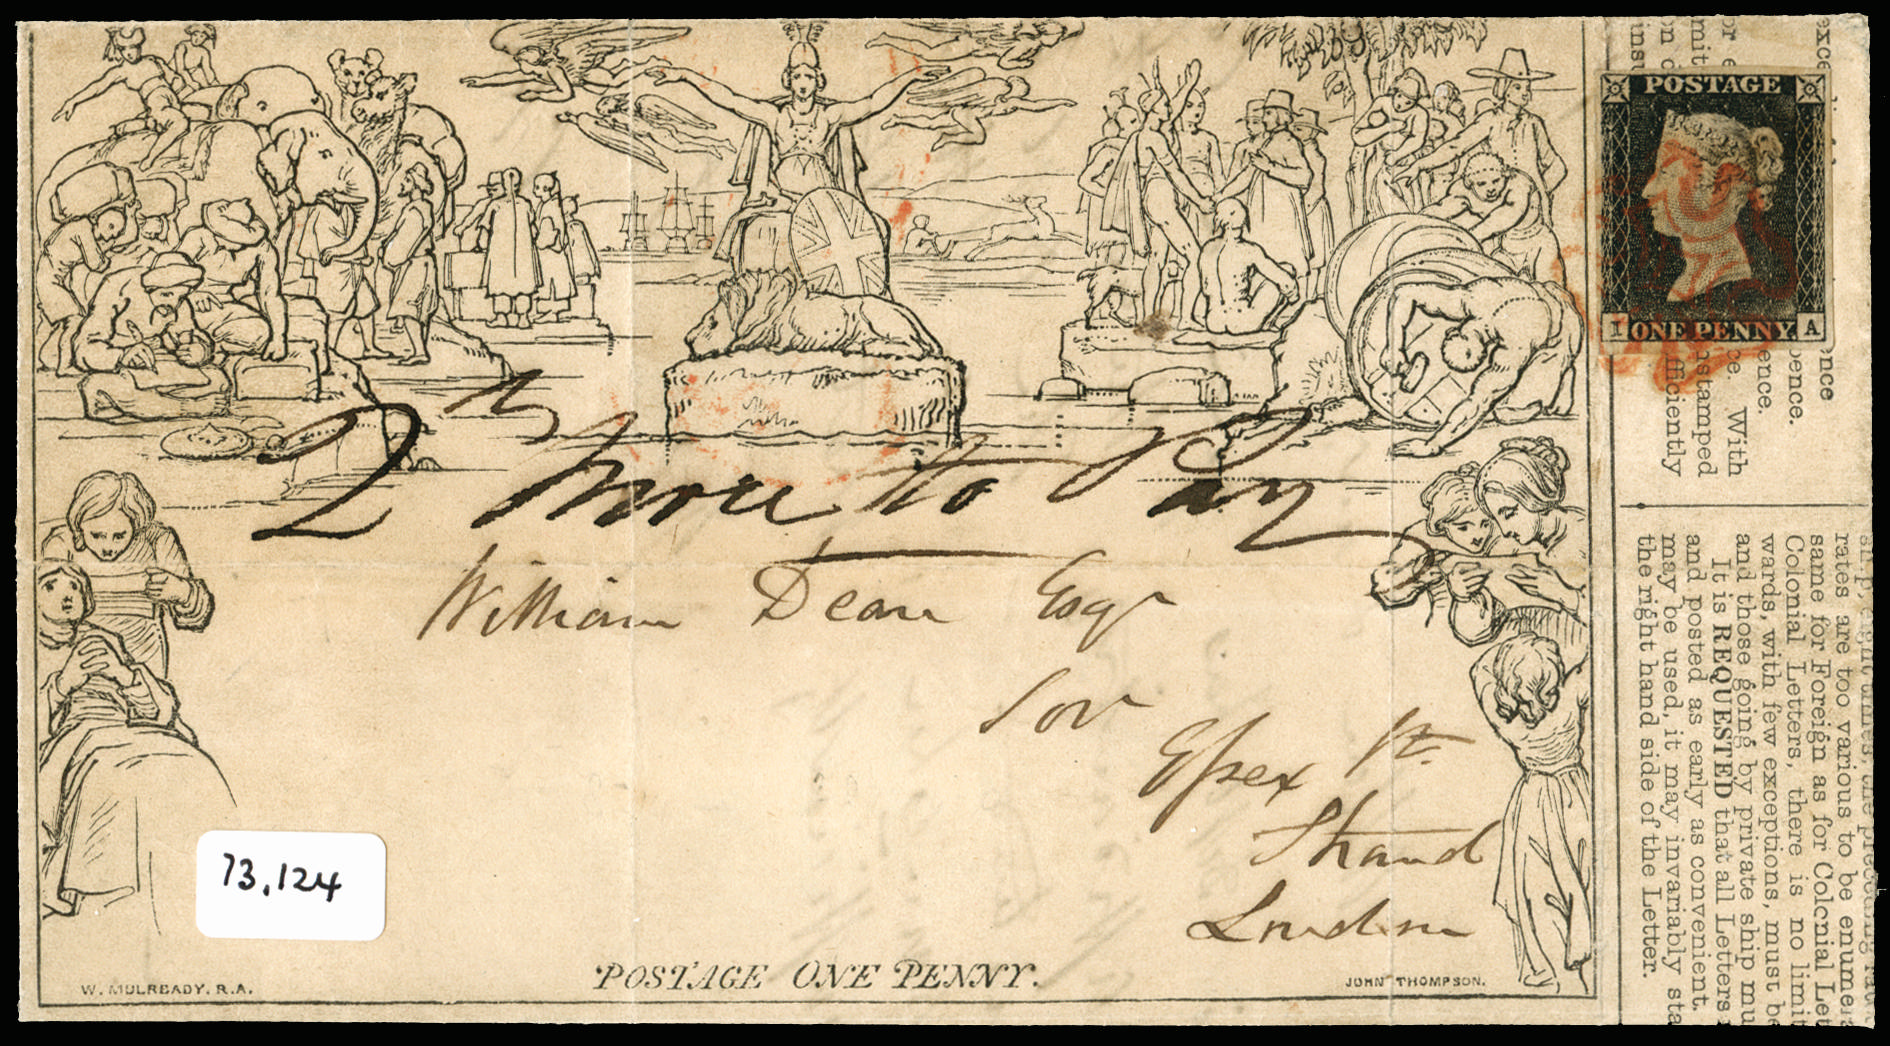 2d More to Pay
William Dean Esqr
Essex St.
Strand
London
73,124
POSTAGE ONE PENNY.
W. MULREADY. R.A.
JOHN THOMPSON.
POSTAGE
I ONE PENNY A
ence
pence.
ence.
ce. With
nstamped
fficiently
rates are too various to be enume
same for Foreign as for Colonial Let
Colonial Letters, there is no limit
wards, with few exceptions, must be
and those going by private ship mu
It is REQUESTED that all Letters
and posted as early as convenient.
may be used, it may invariably sta
the right hand side of the Letter.